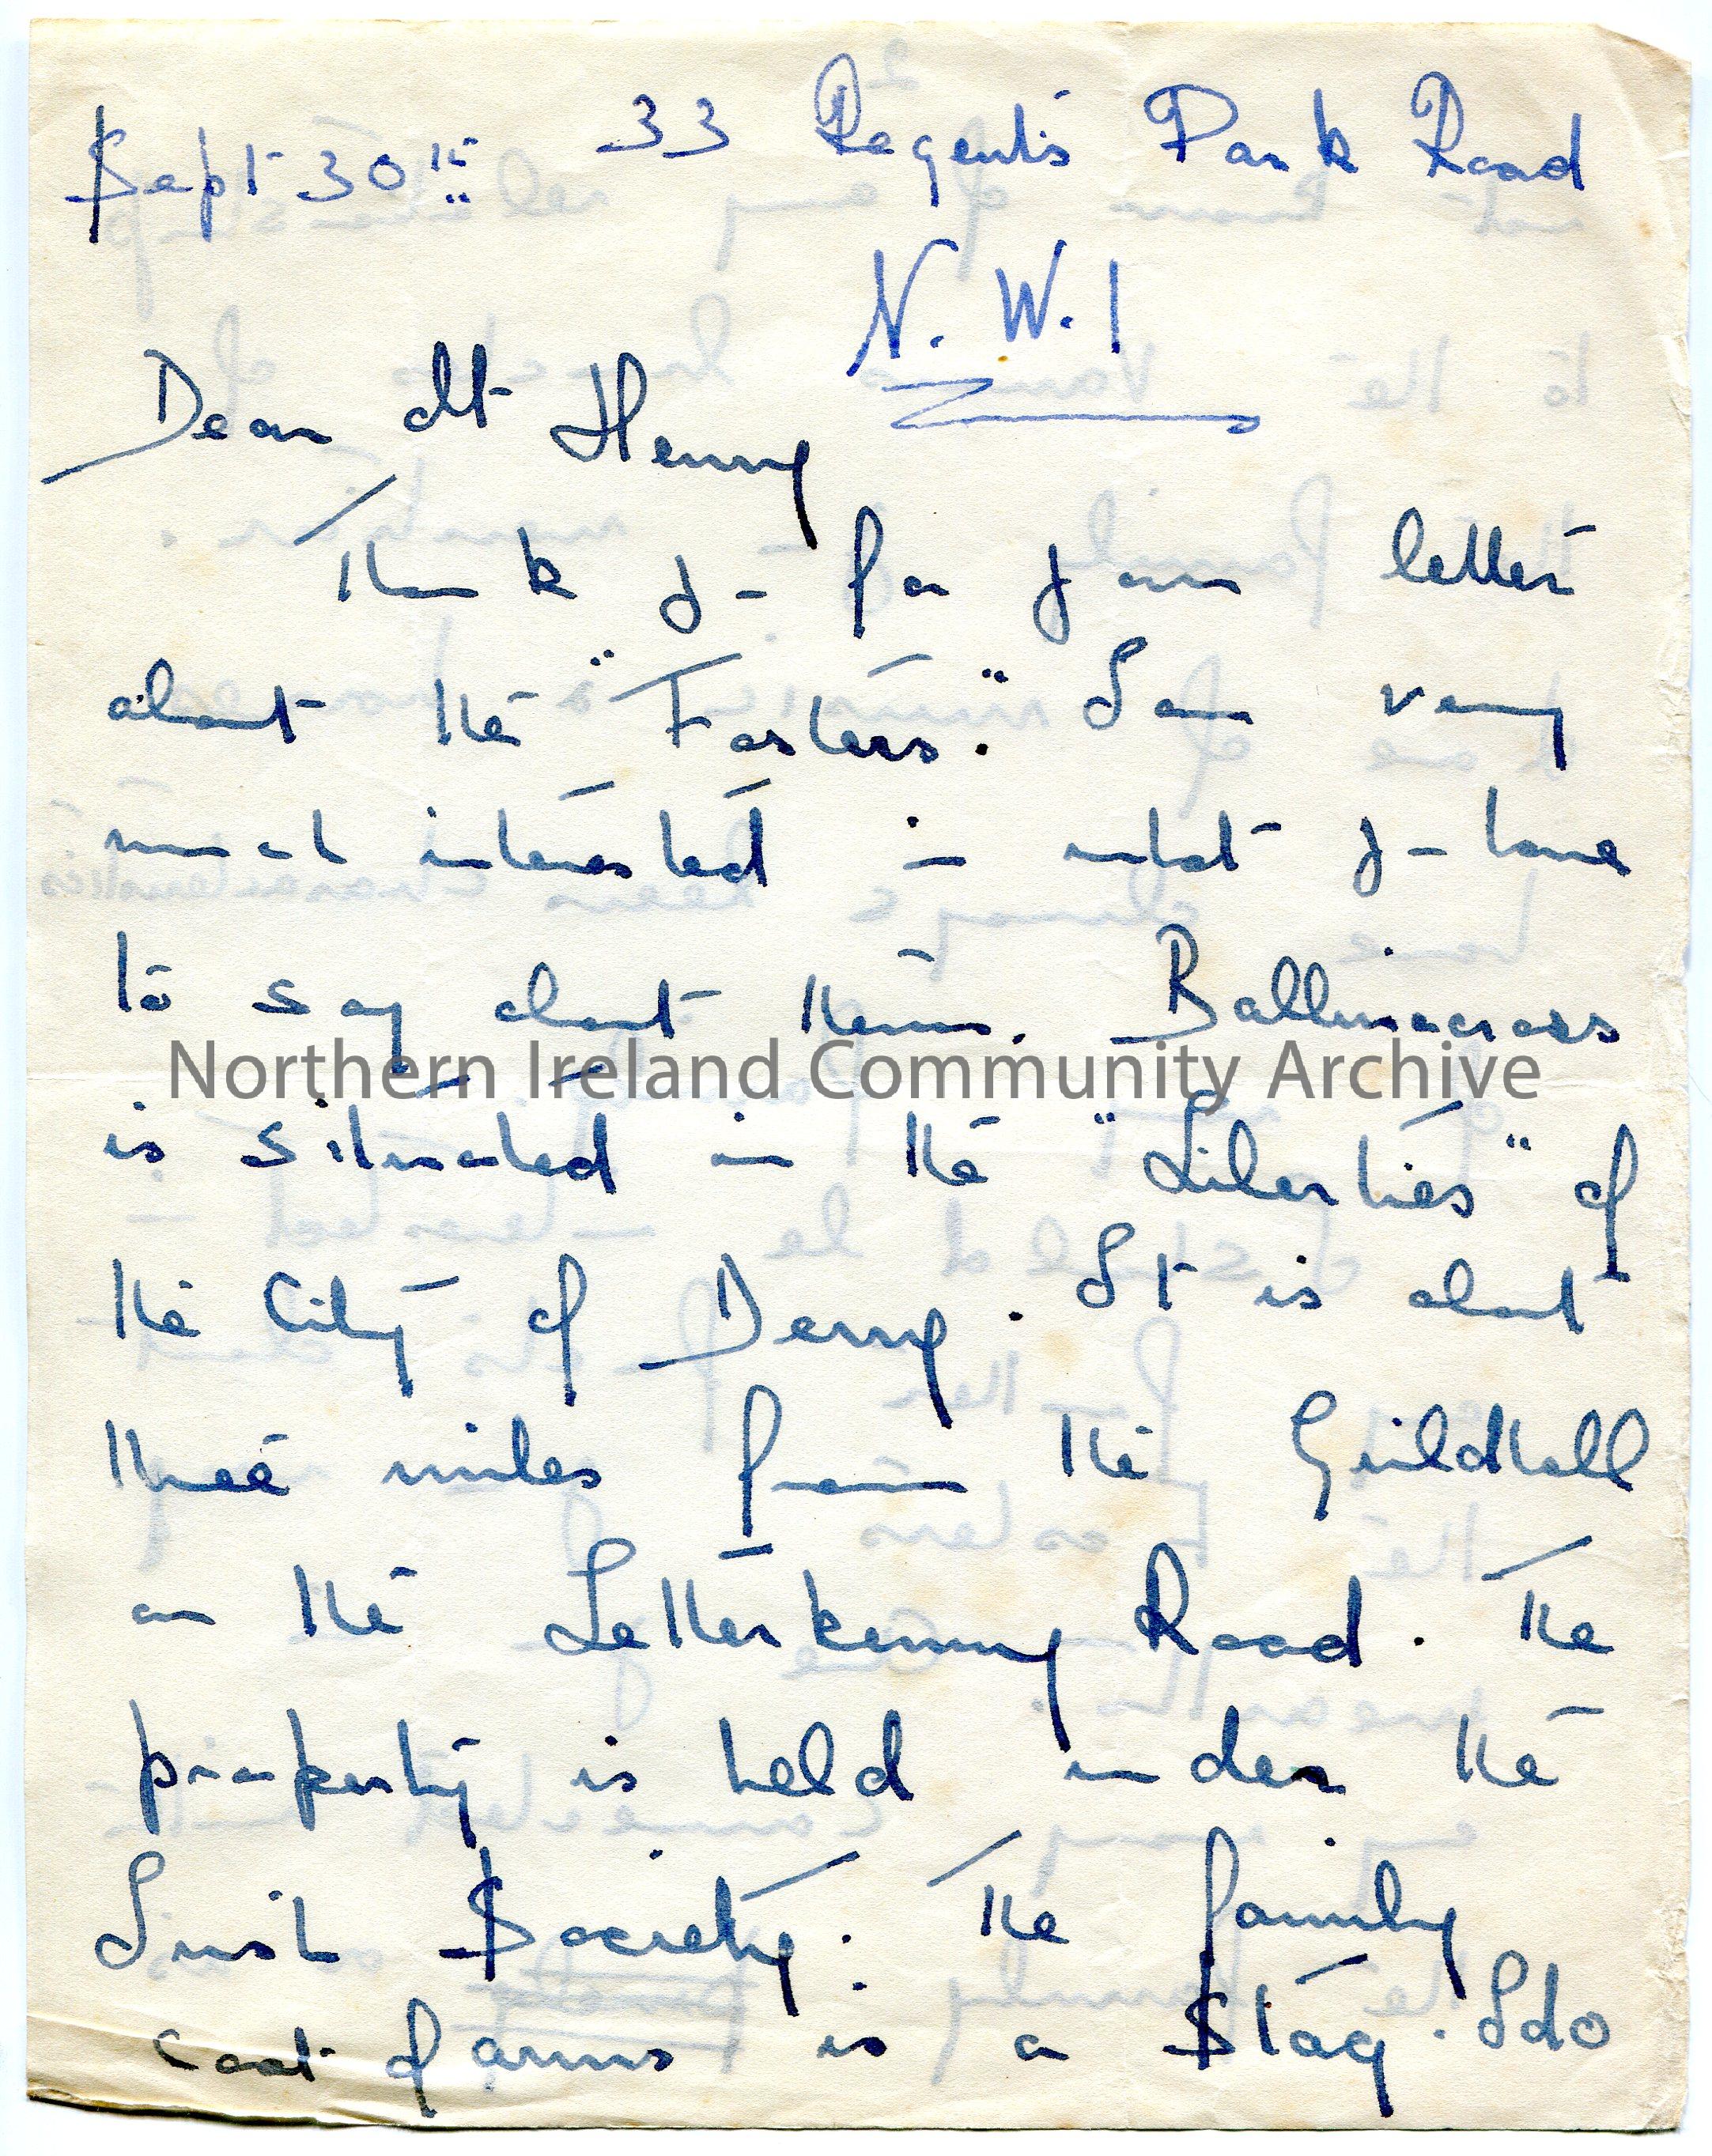 Sept 30th 33 Regent's Park Road
N.W.1
Dear Mr Henry
Thank you for your letter
about the "Fosters". I am very
much interested in what you have
to say about them. Ballinacross
Northern Ireland Community Archive
is situated in the "Liberties" of
the City of Derry. It is about
three miles from the Guildhall
on the Letterkenny Road. The
property is held under the
Irish Society. The family
coat of arms is a Stag. I do